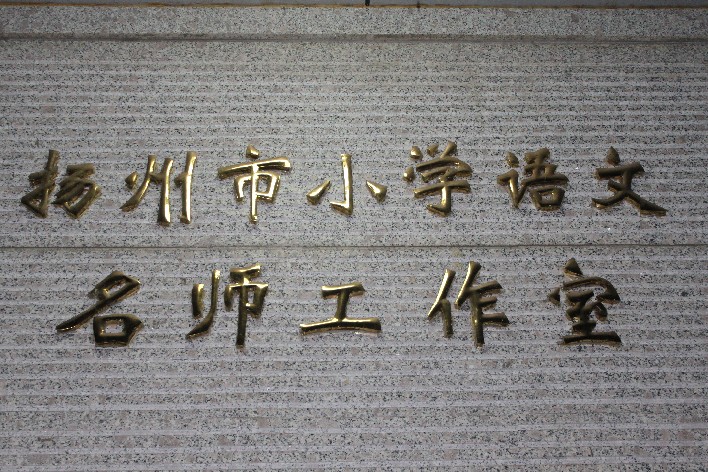 扬州市小学语文
名师工作室